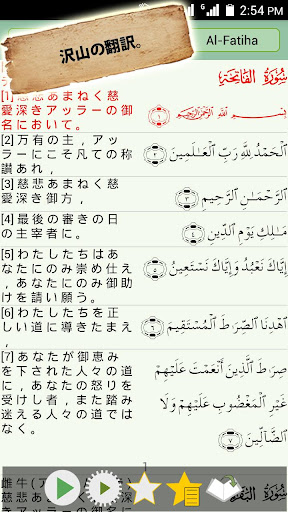 2:54 PM
沢山の翻訳。
Al-Fatiha
سُورَةُ الفَاتِحَةِ
[1] 慈悲あまねく慈
愛深きアッラーの御
名において。
بِسْمِ ٱللَّهِ ٱلرَّحْمَٰنِ ٱلرَّحِيمِ ١
[2] 万有の主，アッ
ラーにこそ凡ての称
讃あれ，
ٱلْحَمْدُ لِلَّهِ رَبِّ ٱلْعَٰلَمِينَ ٢
[3] 慈悲あまねく慈
愛深き御方，
ٱلرَّحْمَٰنِ ٱلرَّحِيمِ ٣
[4] 最後の審きの日
の主宰者に。
مَٰلِكِ يَوْمِ ٱلدِّينِ ٤
[5] わたしたちはあ
なたにのみ崇め仕え
，あなたにのみ御助
けを請い願う。
إِيَّاكَ نَعْبُدُ وَإِيَّاكَ نَسْتَعِينُ ٥
[6] わたしたちを正
しい道に導きたまえ
，
ٱهْدِنَا ٱلصِّرَٰطَ ٱلْمُسْتَقِيمَ ٦
[7] あなたが御恵み
を下された人々の道
に，あなたの怒りを
受けし者，また踏み
迷える人々の道では
なく。
صِرَٰطَ ٱلَّذِينَ أَنْعَمْتَ عَلَيْهِمْ
غَيْرِ ٱلْمَغْضُوبِ عَلَيْهِمْ وَلَا
ٱلضَّآلِّينَ ٧
1